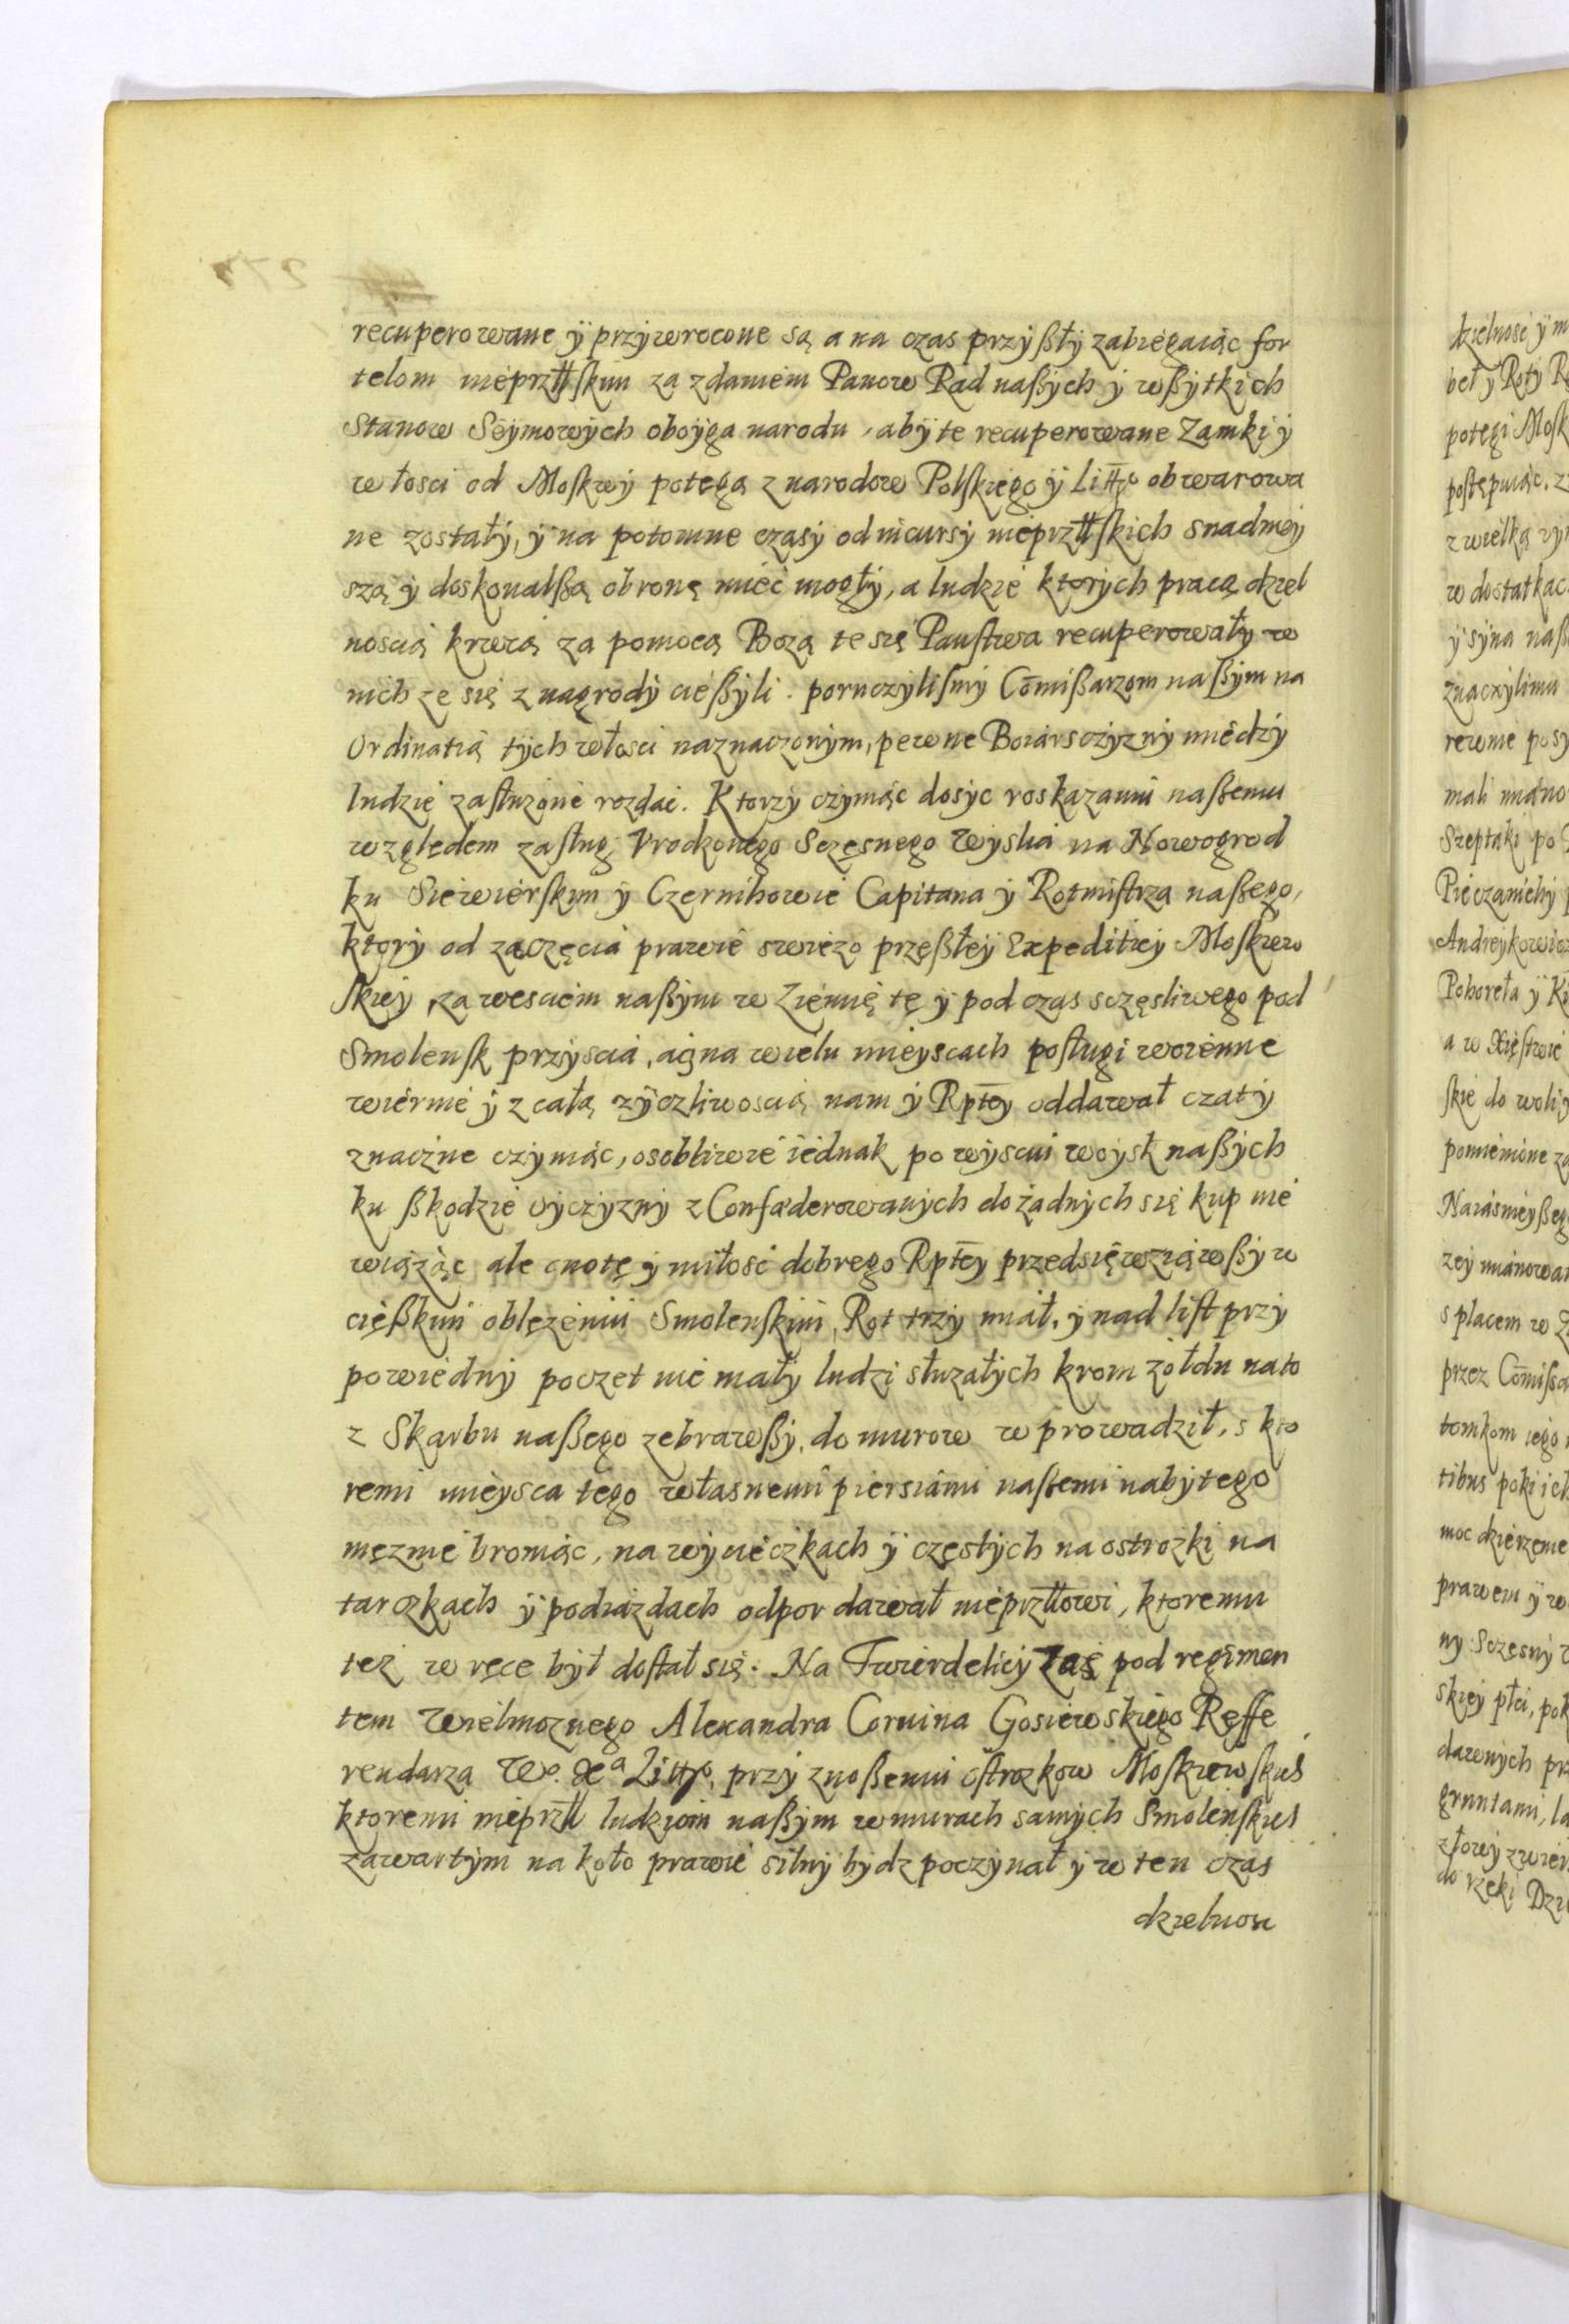 recuperowane ÿ przywrocone są a na czas przyßły zabiegaiąc for
telom nieprzłłskim za zdaniem Panow Rad naßych ÿ wßytkich
Stanow Seymowych oboyga narodu, aby te recuperowane Zamki ÿ
włosci od Moskwy potęgą z narodow Polskiego ÿ Litt° obwarowa
ne zostały, ÿ na potomne czasy od nicursy nieprzłłskich snadniey
szą ÿ doskonalßą obronę mieć mogły, a ludzie ktorych pracą dziel
noscią krwią za pomocą Bozą te się Panstwa recuperowały w
nich ze się z nagrody cießyli. poruczylismy Comißarzom naßym na
Ordinatią tych włosci naznaczonym, pewne Boiarsczyzny między
ludzie zasłuzone rozdać. Ktorzy czyniąc dosyc roskazaniu naßemu
względem zasług Vrodzonego Sczęsnego Wyslia na Nowogrod
ku Siewierskim ÿ Czernihowie Capitana ÿ Rotmistrza naßego,
ktory od zaczęcia prawie swiezo przeßłey Expeditiey Moskiew
skiey, za wesciem naßym w Ziemię tę ÿ pod czas sczęsliwego pod
Smolensk przyscia, aż na wielu mieyscach posługi woienne
wiernie ÿ z całą zyczliwoscią nam ÿ Rptey oddawał czaty
znaczne czyniąc, osobliwie iednak po wysciu woysk naßych
ku ßkodzie oyczyzny z Confæderowanych do żadnych się kup nie
wiążąc ale cnotę ÿ miłość dobrego Rptey przedsięwziąwßy w
cięßkim oblęzeniu Smolenskim, Rot trzy miał, ÿ nad list przy
powiedny poczet nie mały ludzi słuzałych krom zołdu na to
z Skarbu naßego zebrawßy, do murow wprowadził, s kto
remi mieysca tego własnemi piersiami naßemi nabytego
męznie broniąc, na wycieczkach ÿ częstych na ostrozki na
tarczkach ÿ podiazdach odpor dawał nieprzłłowi, ktoremu
też w ręce był dostał się. Na Twierdelicy Zaś pod regimen
tem Wielmoznego Alexandra Coruina Gosiewskiego Reffe
rendarza W°. Xª Litt°, przy znoßeniu ostrozkow Moskiewskich
ktoremi nieprzłł ludziom naßym w murach samych Smolenskich
zawartym na koło prawie silny bydz poczynał ÿ w ten czas
dzielnosc
dzielnosć ÿ m
beł ÿ Roty R
potęgi Mosk
postępuiąc. z
z wielką
w dostatkac
ÿ syna naß
znaczylimu
rewnie posy
mali miano
Szeptaki po
Pieczanichy
Andreykowicz
Pohoreła ÿ Ki
a w Xięstwie
skie do woli
pomienione za
Naiasnieyßeg
zey mianowan
s placem w
przez Comißa
tomkom iego
tibus poki ich
moc dzierzenie
prawem ÿ w
ny Sczęsny
skiey płci, pok
dawnych prz
gruntami, la
złowy zwier
do rzeki Dzi